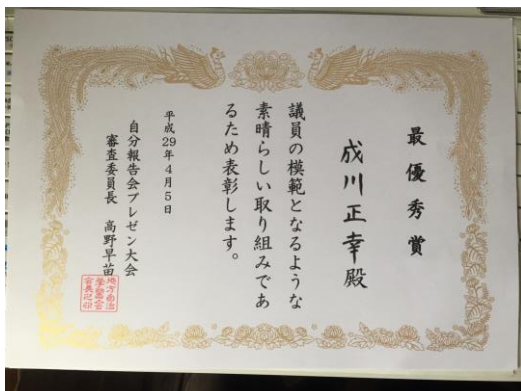 最優秀賞
成川正幸殿
議員の模範となるような
素晴らしい取り組みであ
るため表彰します。
平成29年4月5日
自分報告会プレゼン大会
審査委員長 高野早苗
地方自治
学習会
会長之印